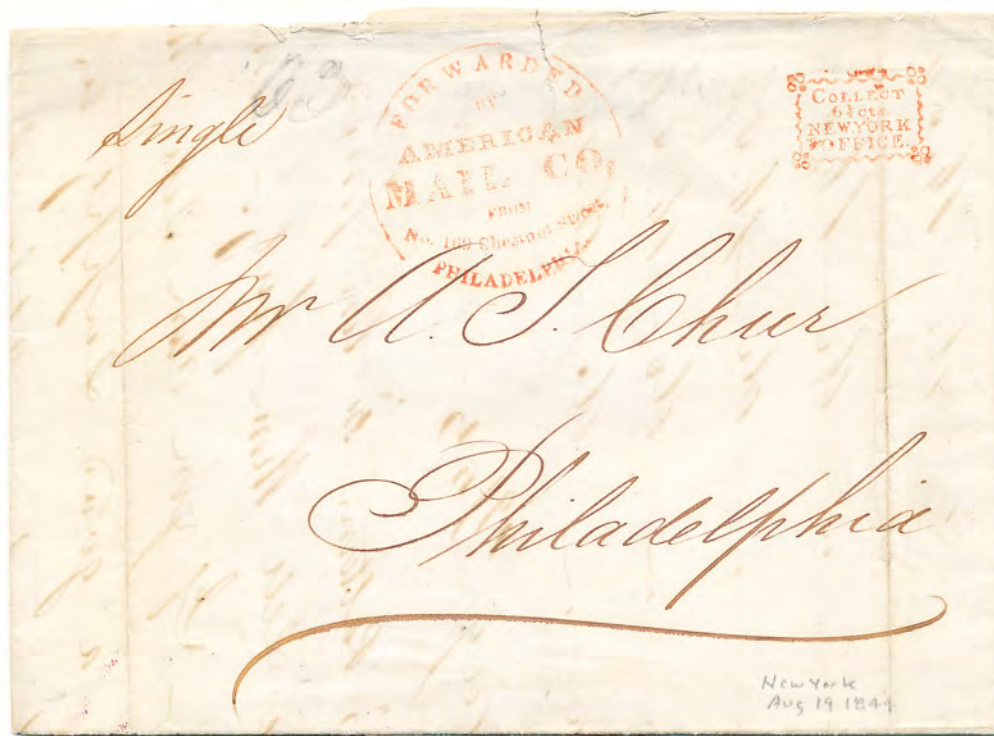 Single
FORWARDED
BY
AMERICAN
MAIL CO.
FROM
No. 109 Chesnut Street,
PHILADELPHIA.
COLLECT
6¼ cts.
NEW YORK
OFFICE.
Mr A. S. Chur
Philadelphia
New York
Aug 19 1844